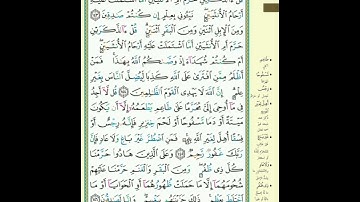 قُلْ ءَآلذَّكَرَيْنِ حَرَّمَ أَمِ ٱلْأُنثَيَيْنِ أَمَّا ٱشْتَمَلَتْ عَلَيْهِ
أَرْحَامُ ٱلْأُنثَيَيْنِ ۖ نَبِّـُٔونِى بِعِلْمٍ إِن كُنتُمْ صَٰدِقِينَ ١٤٣
وَمِنَ ٱلْإِبِلِ ٱثْنَيْنِ وَمِنَ ٱلْبَقَرِ ٱثْنَيْنِ ۗ قُلْ ءَآلذَّكَرَيْنِ
حَرَّمَ أَمِ ٱلْأُنثَيَيْنِ أَمَّا ٱشْتَمَلَتْ عَلَيْهِ أَرْحَامُ ٱلْأُنثَيَيْنِ ۖ
أَمْ كُنتُمْ شُهَدَآءَ إِذْ وَصَّىٰكُمُ ٱللَّهُ بِهَٰذَا ۚ فَمَنْ
أَظْلَمُ مِمَّنِ ٱفْتَرَىٰ عَلَى ٱللَّهِ كَذِبًا لِّيُضِلَّ ٱلنَّاسَ بِغَيْرِ
عِلْمٍ ۗ إِنَّ ٱللَّهَ لَا يَهْدِى ٱلْقَوْمَ ٱلظَّٰلِمِينَ ١٤٤ قُل لَّآ أَجِدُ
فِى مَآ أُوحِىَ إِلَىَّ مُحَرَّمًا عَلَىٰ طَاعِمٍ يَطْعَمُهُۥٓ إِلَّآ أَن يَكُونَ
مَيْتَةً أَوْ دَمًا مَّسْفُوحًا أَوْ لَحْمَ خِنزِيرٍ فَإِنَّهُۥ رِجْسٌ أَوْ
فِسْقًا أُهِلَّ لِغَيْرِ ٱللَّهِ بِهِۦ ۚ فَمَنِ ٱضْطُرَّ غَيْرَ بَاغٍ وَلَا عَادٍ فَإِنَّ
رَبَّكَ غَفُورٌ رَّحِيمٌ ١٤٥ وَعَلَى ٱلَّذِينَ هَادُوا۟ حَرَّمْنَا
كُلَّ ذِى ظُفُرٍ ۖ وَمِنَ ٱلْبَقَرِ وَٱلْغَنَمِ حَرَّمْنَا عَلَيْهِمْ
شُحُومَهُمَآ إِلَّا مَا حَمَلَتْ ظُهُورُهُمَآ أَوِ ٱلْحَوَايَآ أَوْ مَا
ٱخْتَلَطَ بِعَظْمٍ ۚ ذَٰلِكَ جَزَيْنَٰهُم بِبَغْيِهِمْ ۖ وَإِنَّا لَصَٰدِقُونَ ١٤٦